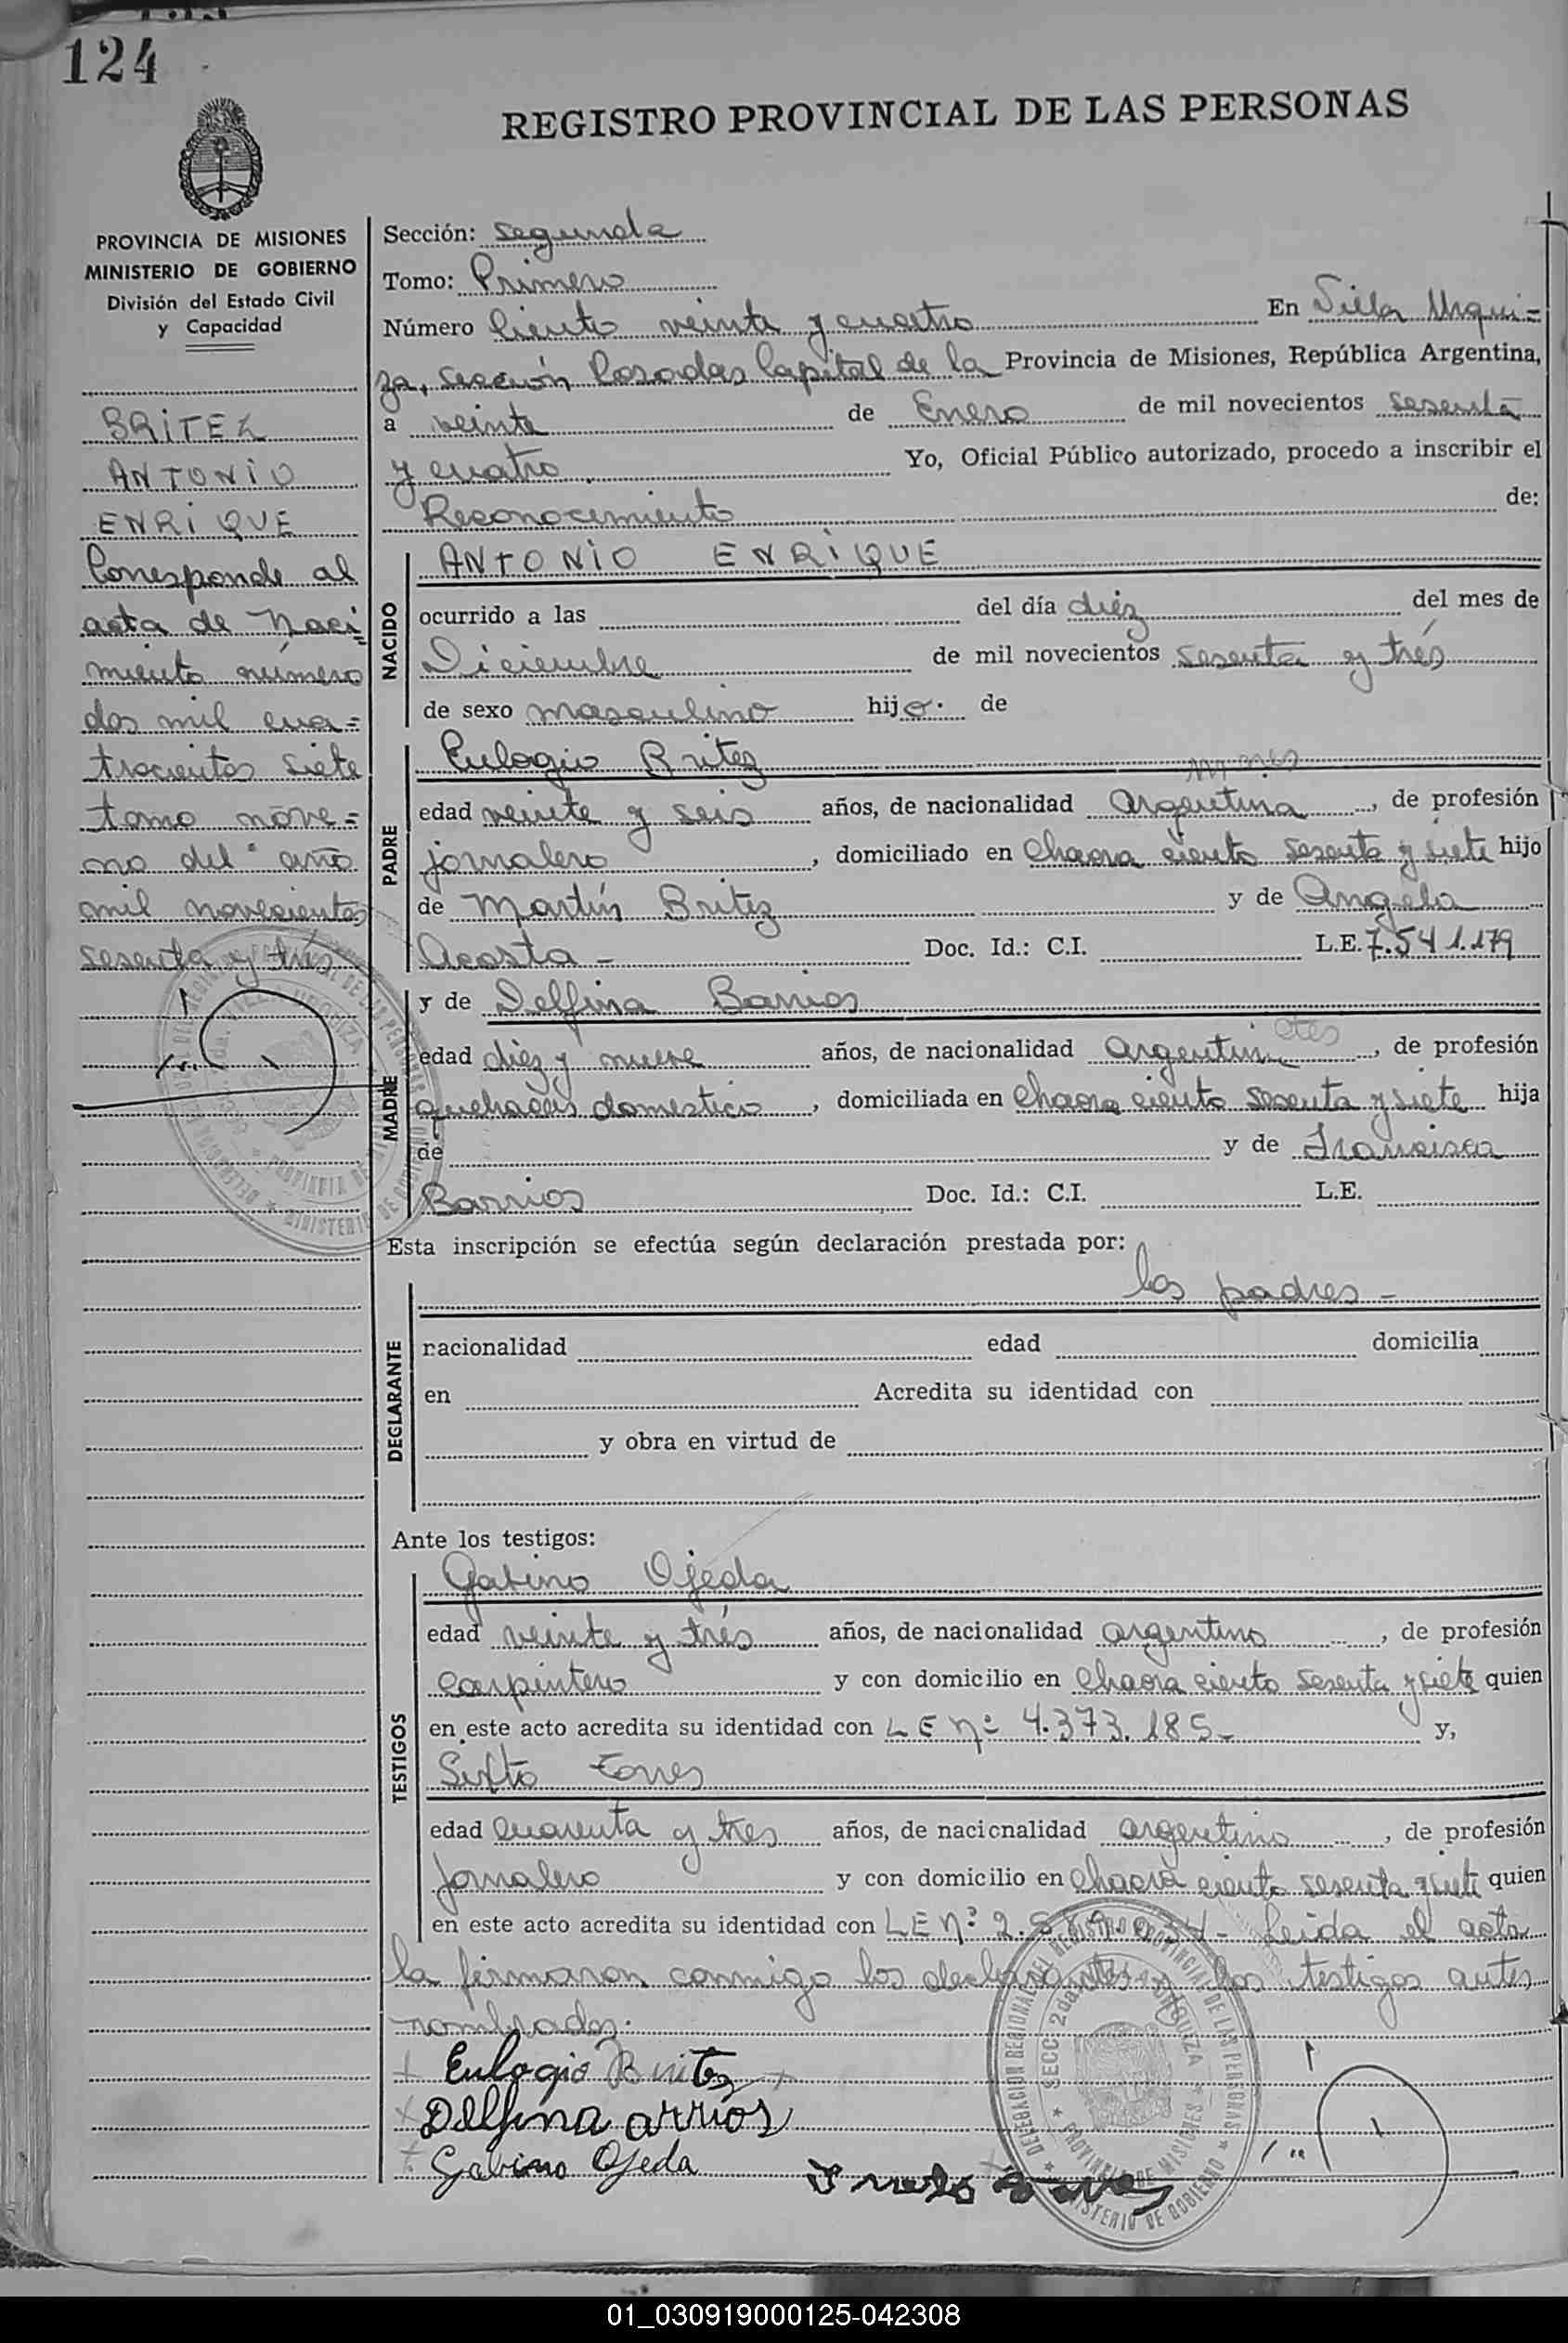 124
REGISTRO PROVINCIAL DE LAS PERSONAS
PROVINCIA DE MISIONES
MINISTERIO DE GOBIERNO
División del Estado Civil
y Capacidad
BRITEZ
ANTONIO
ENRIQUE
Corresponde al
acta de Naci
miento número
dos mil cua=
trocientos siete
tomo nove=
no del año
mil novecientos
sesenta y trés
Sección: segunda
Tomo: Primero
Número Ciento veinte y cuatro En Villa Urqui=
za, sección Posadas Capital de la Provincia de Misiones, República Argentina,
a veinte de Enero de mil novecientos sesenta
y cuatro Yo, Oficial Público autorizado, procedo a inscribir el
Reconocimiento de:
NACIDO
ANTONIO ENRIQUE
ocurrido a las del día diéz del mes de
Diciembre de mil novecientos sesenta y trés
de sexo masculino hijo. de
PADRE
Eulogio Britez
edad veinte y seis años, de nacionalidad Argentina, de profesión
jornalero, domiciliado en Chacra ciento sesenta y siete hijo
de Martín Britez y de Angela
Acosta - Doc. Id.: C.I. L.E. 7.541.179
MADRE
y de Delfina Barrios
edad diez y nueve años, de nacionalidad Argentin, de profesión
quehaceres domestico, domiciliada en Chacra ciento sesenta y siete hija
de y de Francisca
Barrios Doc. Id.: C.I. L.E.
Esta inscripción se efectúa según declaración prestada por:
DECLARANTE
los padres -
nacionalidad edad domicilia
en Acredita su identidad con
y obra en virtud de
Ante los testigos:
TESTIGOS
Gabino Ojeda
edad veinte y trés años, de nacionalidad argentino, de profesión
Carpintero y con domicilio en Chacra ciento sesenta y siete quien
en este acto acredita su identidad con LE nº 4.373.185- y,
Sixto Torres
edad cuarenta y tres años, de nacionalidad argentino, de profesión
Jornalero y con domicilio en Chacra ciento sesenta y siete quien
en este acto acredita su identidad con LE nº 2. Leida el acta
la firmaron conmigo los declarantes y los testigos antes
nombrados.
Eulogio Britez
Delfina arrios
Gabino Ojeda
DELEGACION REGIONAL DEL REGISTRO PROVINCIAL DE LAS PERSONAS
SECC. 2da. URQUIZA
PROVINCIA DE MISIONES
MINISTERIO DE GOBIERNO
01_030919000125-042308